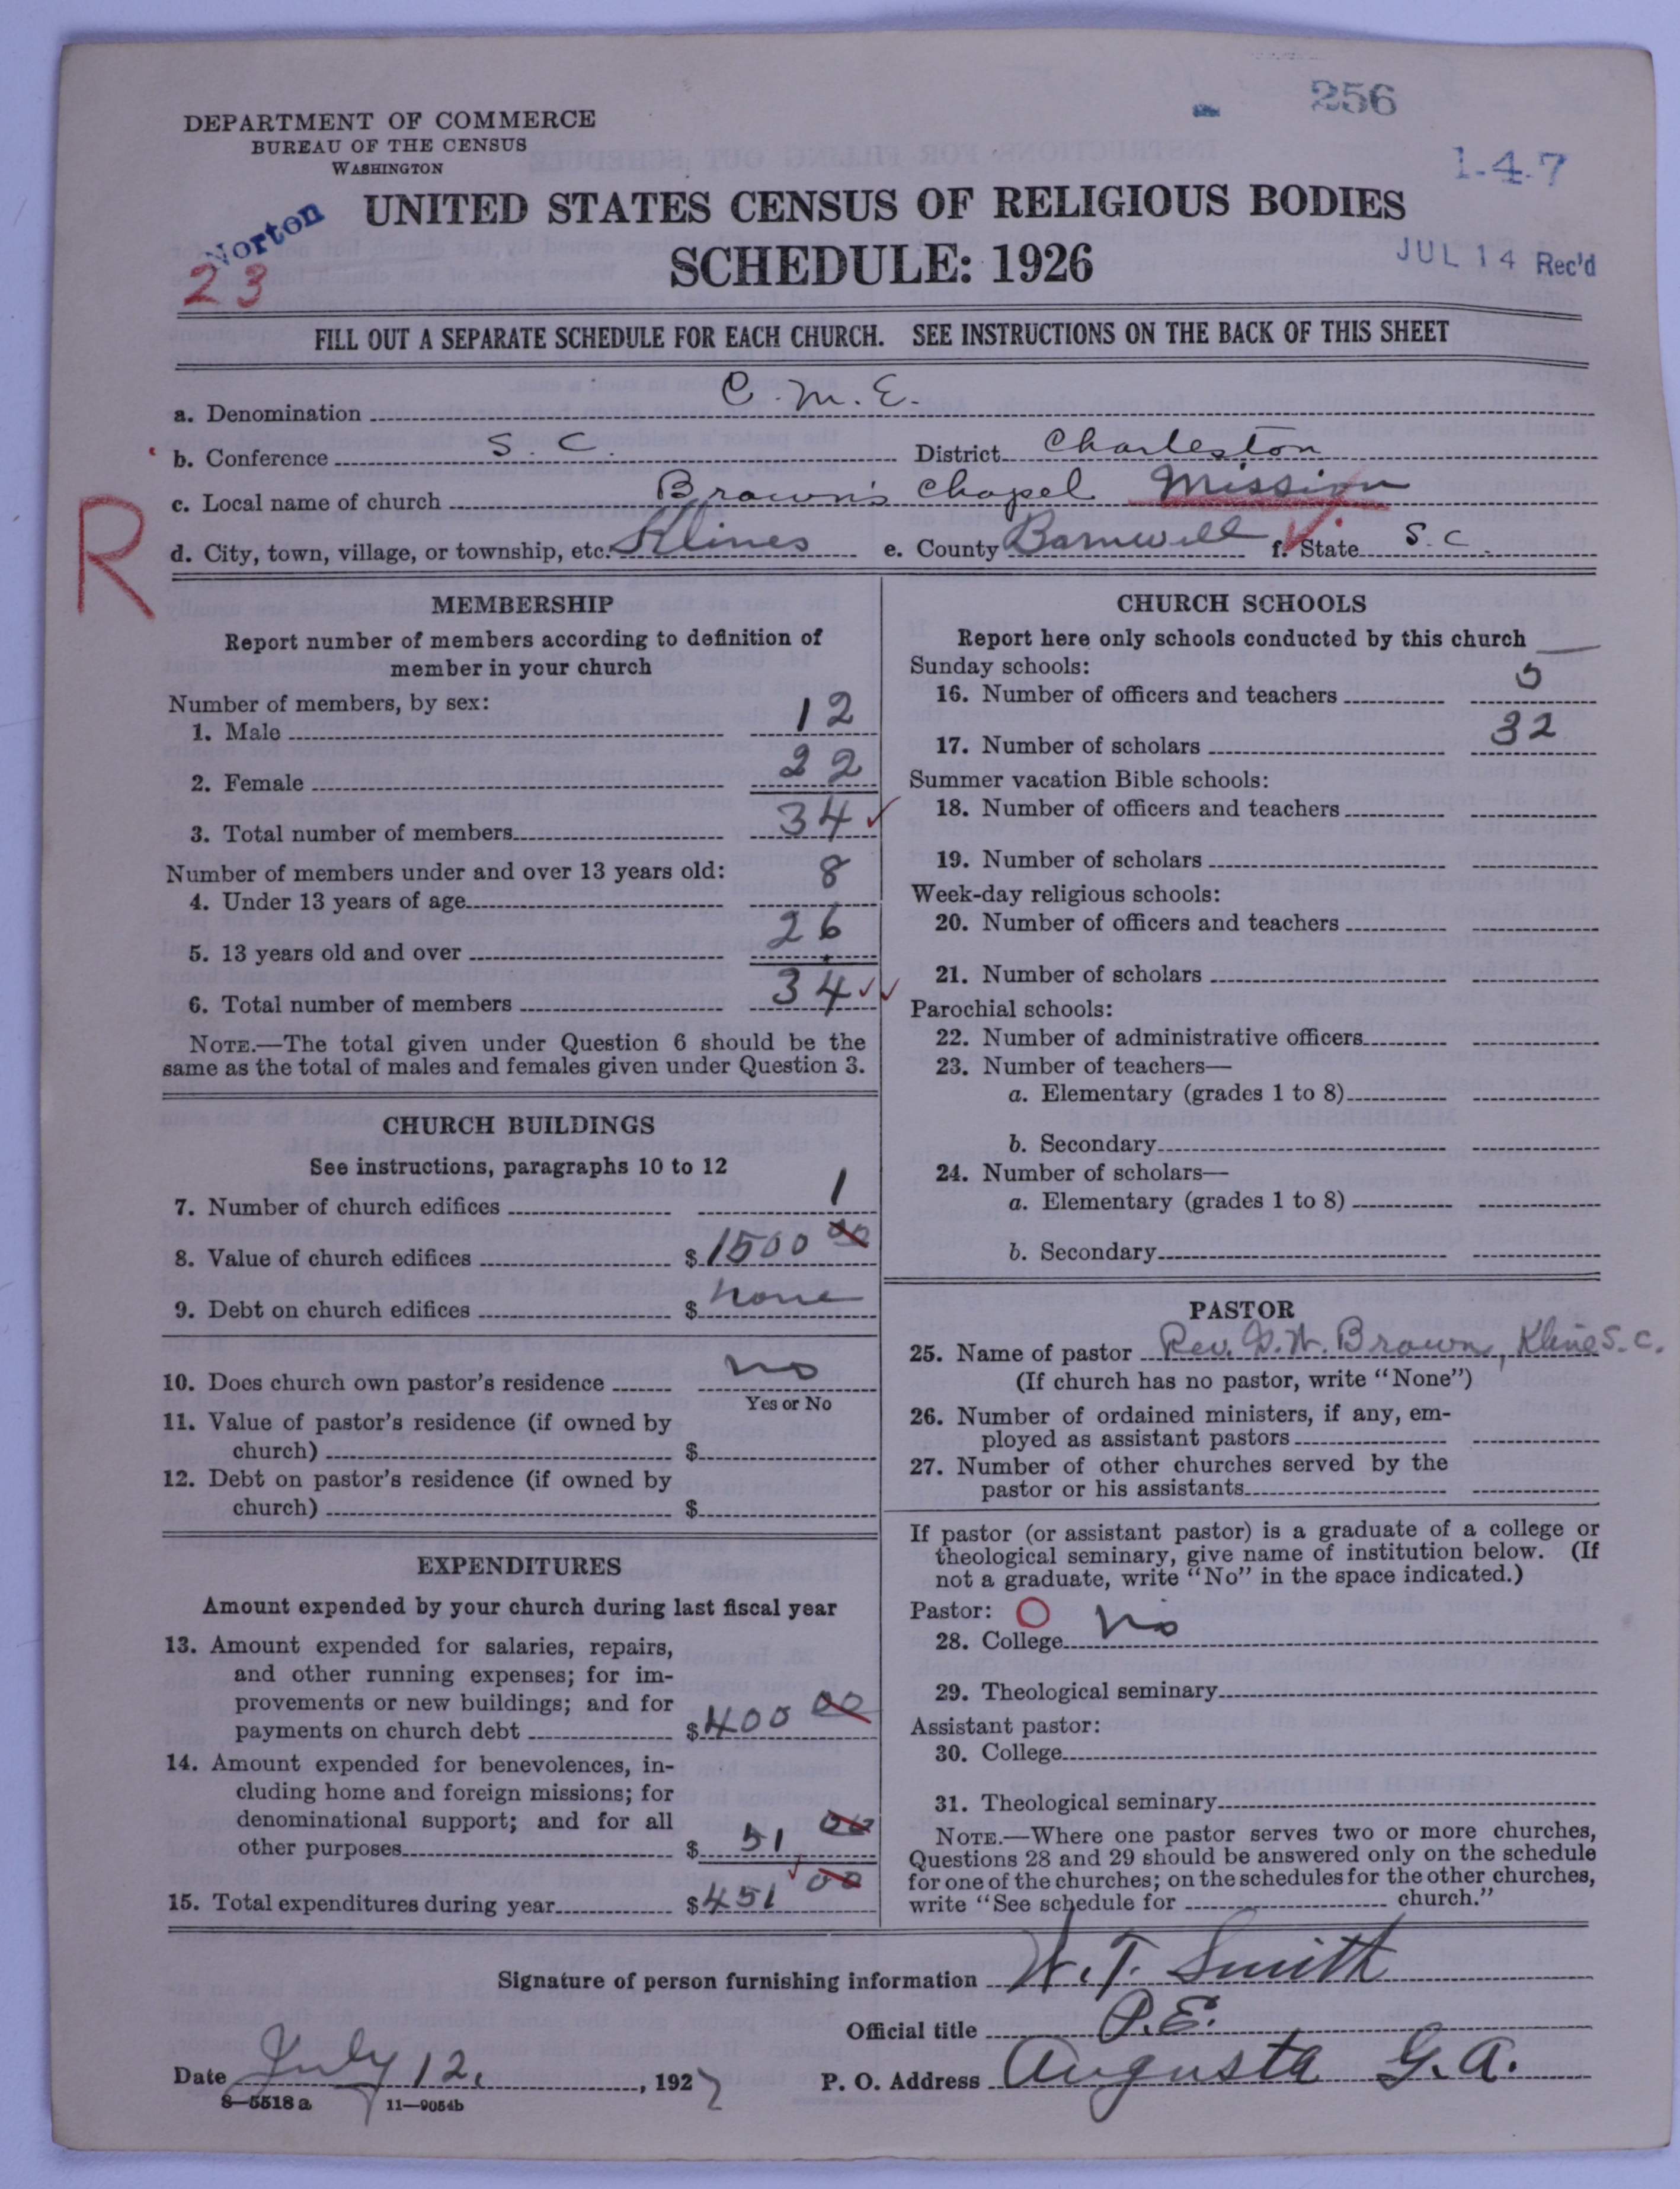 256
1-4-7
DEPARTMENT OF COMMERCE
BUREAU OF THE CENSUS
WASHINGTON
Norton
23
UNITED STATES CENSUS OF RELIGIOUS BODIES
SCHEDULE: 1926
JUL 14 Rec'd
FILL OUT A SEPARATE SCHEDULE FOR EACH CHURCH. SEE INSTRUCTIONS ON THE BACK OF THIS SHEET
a. Denomination C. M. E.
b. Conference S. C. District Charleston
c. Local name of church Brown's Chapel Mission
R
d. City, town, village, or township, etc. Klines e. County Barnwell f. State S. C.
MEMBERSHIP
Report number of members according to definition of
member in your church
Number of members, by sex:
1. Male 12
2. Female 22
3. Total number of members 34
Number of members under and over 13 years old:
4. Under 13 years of age 8
5. 13 years old and over 26
6. Total number of members 34
NOTE.—The total given under Question 6 should be the
same as the total of males and females given under Question 3.
CHURCH BUILDINGS
See instructions, paragraphs 10 to 12
7. Number of church edifices 1
8. Value of church edifices $1500 00
9. Debt on church edifices $ none
10. Does church own pastor's residence no
Yes or No
11. Value of pastor's residence (if owned by
church) $
12. Debt on pastor's residence (if owned by
church) $
EXPENDITURES
Amount expended by your church during last fiscal year
13. Amount expended for salaries, repairs,
and other running expenses; for im-
provements or new buildings; and for
payments on church debt $400 00
14. Amount expended for benevolences, in-
cluding home and foreign missions; for
denominational support; and for all
other purposes $ 51 00
15. Total expenditures during year $451 00
CHURCH SCHOOLS
Report here only schools conducted by this church
Sunday schools:
16. Number of officers and teachers 5
17. Number of scholars 32
Summer vacation Bible schools:
18. Number of officers and teachers
19. Number of scholars
Week-day religious schools:
20. Number of officers and teachers
21. Number of scholars
Parochial schools:
22. Number of administrative officers
23. Number of teachers—
a. Elementary (grades 1 to 8)
b. Secondary
24. Number of scholars—
a. Elementary (grades 1 to 8)
b. Secondary
PASTOR
25. Name of pastor Rev. G. W. Brown, Kline S. C.
(If church has no pastor, write "None")
26. Number of ordained ministers, if any, em-
ployed as assistant pastors
27. Number of other churches served by the
pastor or his assistants
If pastor (or assistant pastor) is a graduate of a college or
theological seminary, give name of institution below. (If
not a graduate, write "No" in the space indicated.)
Pastor: O
28. College No
29. Theological seminary
Assistant pastor:
30. College
31. Theological seminary
NOTE.—Where one pastor serves two or more churches,
Questions 28 and 29 should be answered only on the schedule
for one of the churches; on the schedules for the other churches,
write "See schedule for church."
Signature of person furnishing information W. T. Smith
Official title P. E.
Date July 12, 1927 P. O. Address Augusta G. A.
8—5518 a 11—9054b